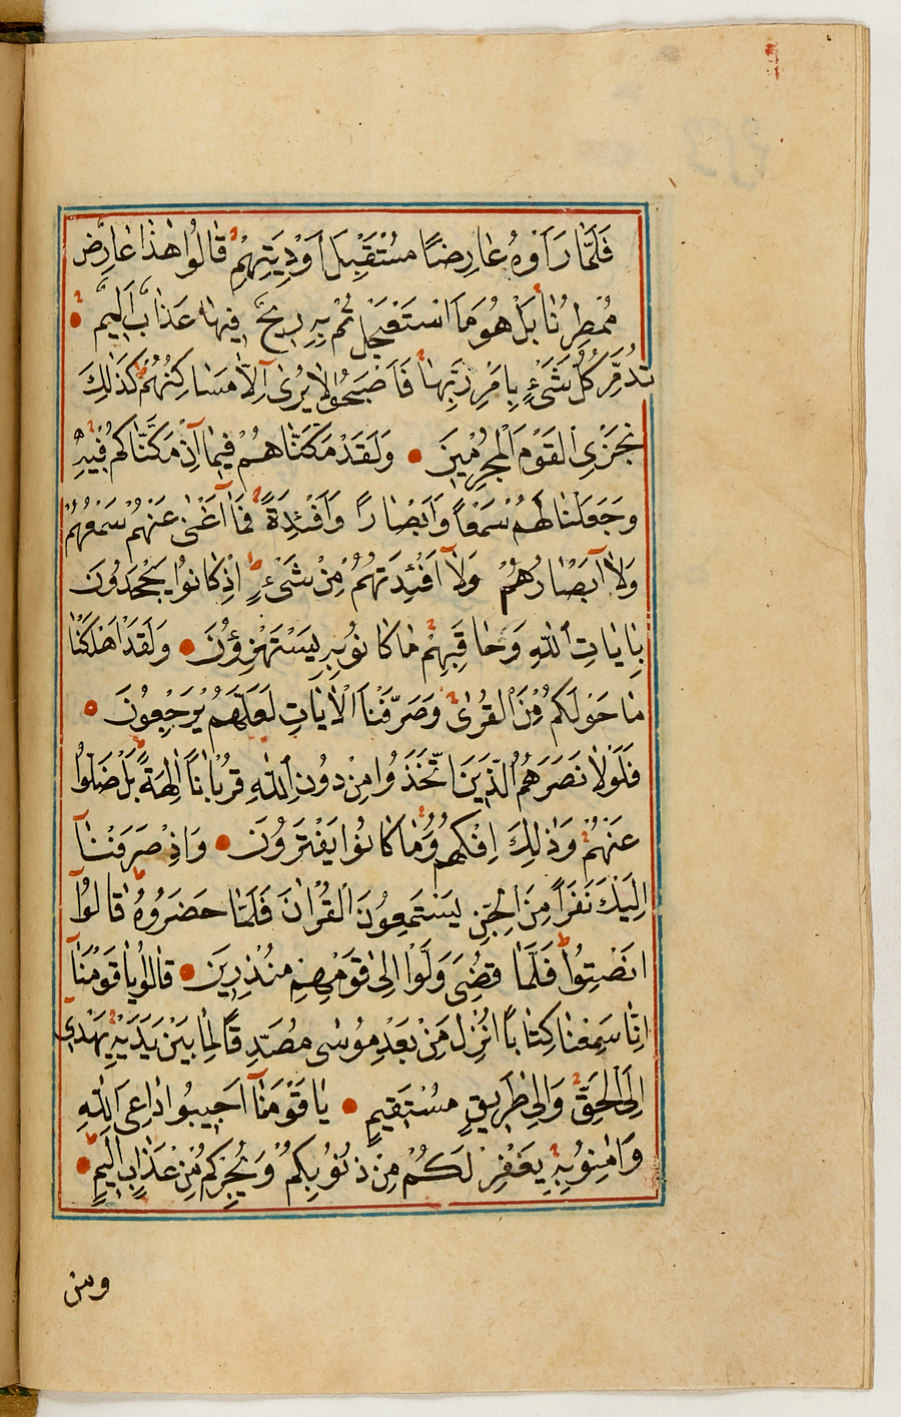 فَلَمَّا رَاَوْهُ عَارِضًا مُسْتَقْبِلَ اَوْدِيَتِهِمْ قَالُوا هٰذَا عَارِضٌ
مُمْطِرُنَا بَلْ هُوَ مَا اسْتَعْجَلْتُمْ بِهِ رِيحٌ فِيهَا عَذَابٌ اَلِيمٌ
تُدَمِّرُ كُلَّ شَيْءٍ بِاَمْرِ رَبِّهَا فَاَصْبَحُوا لَا يُرٰى اِلَّا مَسَاكِنُهُمْ كَذٰلِكَ
نَجْزِي الْقَوْمَ الْمُجْرِمِينَ وَلَقَدْ مَكَّنَّاهُمْ فِيمَا اِنْ مَكَّنَّاكُمْ فِيهِ
وَجَعَلْنَا لَهُمْ سَمْعًا وَاَبْصَارًا وَاَفْـِٔدَةً فَمَا اَغْنٰى عَنْهُمْ سَمْعُهُمْ
وَلَا اَبْصَارُهُمْ وَلَا اَفْـِٔدَتُهُمْ مِنْ شَيْءٍ اِذْ كَانُوا يَجْحَدُونَ
بِاٰيَاتِ اللّٰهِ وَحَاقَ بِهِمْ مَا كَانُوا بِهِ يَسْتَهْزِؤُنَ وَلَقَدْ اَهْلَكْنَا
مَا حَوْلَكُمْ مِنَ الْقُرٰى وَصَرَّفْنَا الْاٰيَاتِ لَعَلَّهُمْ يَرْجِعُونَ
فَلَوْلَا نَصَرَهُمُ الَّذِينَ اتَّخَذُوا مِنْ دُونِ اللّٰهِ قُرْبَانًا اٰلِهَةً بَلْ ضَلُّوا
عَنْهُمْ وَذٰلِكَ اِفْكُهُمْ وَمَا كَانُوا يَفْتَرُونَ وَاِذْ صَرَفْنَا
اِلَيْكَ نَفَرًا مِنَ الْجِنِّ يَسْتَمِعُونَ الْقُرْاٰنَ فَلَمَّا حَضَرُوهُ قَالُوا
اَنْصِتُوا فَلَمَّا قُضِيَ وَلَّوْا اِلٰى قَوْمِهِمْ مُنْذِرِينَ قَالُوا يَا قَوْمَنَا
اِنَّا سَمِعْنَا كِتَابًا اُنْزِلَ مِنْ بَعْدِ مُوسٰى مُصَدِّقًا لِمَا بَيْنَ يَدَيْهِ يَهْدِي
اِلَى الْحَقِّ وَاِلٰى طَرِيقٍ مُسْتَقِيمٍ يَا قَوْمَنَا اَجِيبُوا دَاعِيَ اللّٰهِ
وَاٰمِنُوا بِهِ يَغْفِرْ لَكُمْ مِنْ ذُنُوبِكُمْ وَيُجِرْكُمْ مِنْ عَذَابٍ اَلِيمٍ
ومن